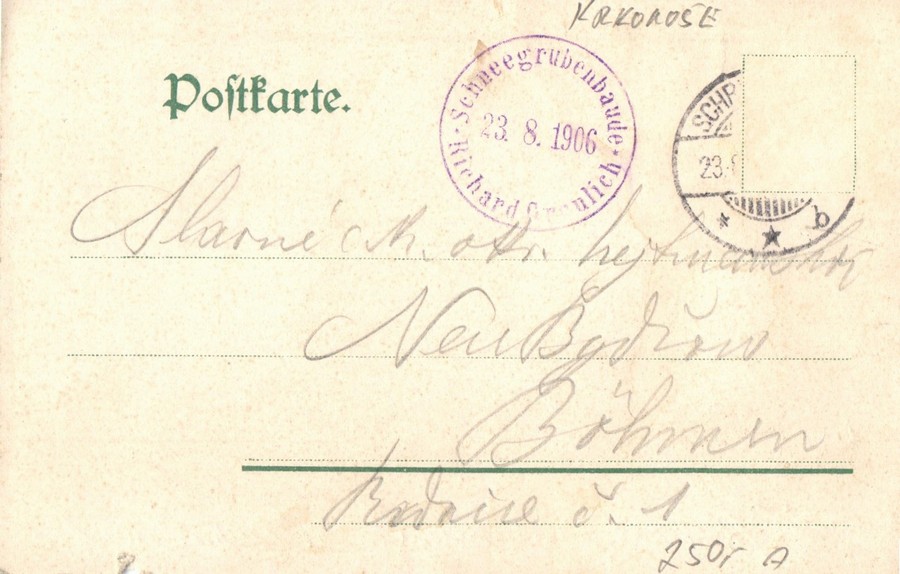 KRKONOŠE
Postkarte.
Schneegrubenbaude
23. 8. 1906
Richard Greulich
SCHR
23.8
* ★ b
Slavné c. k. okr. hejtmanství
Neu Bydžow
Böhmen
č. 1
250,- A